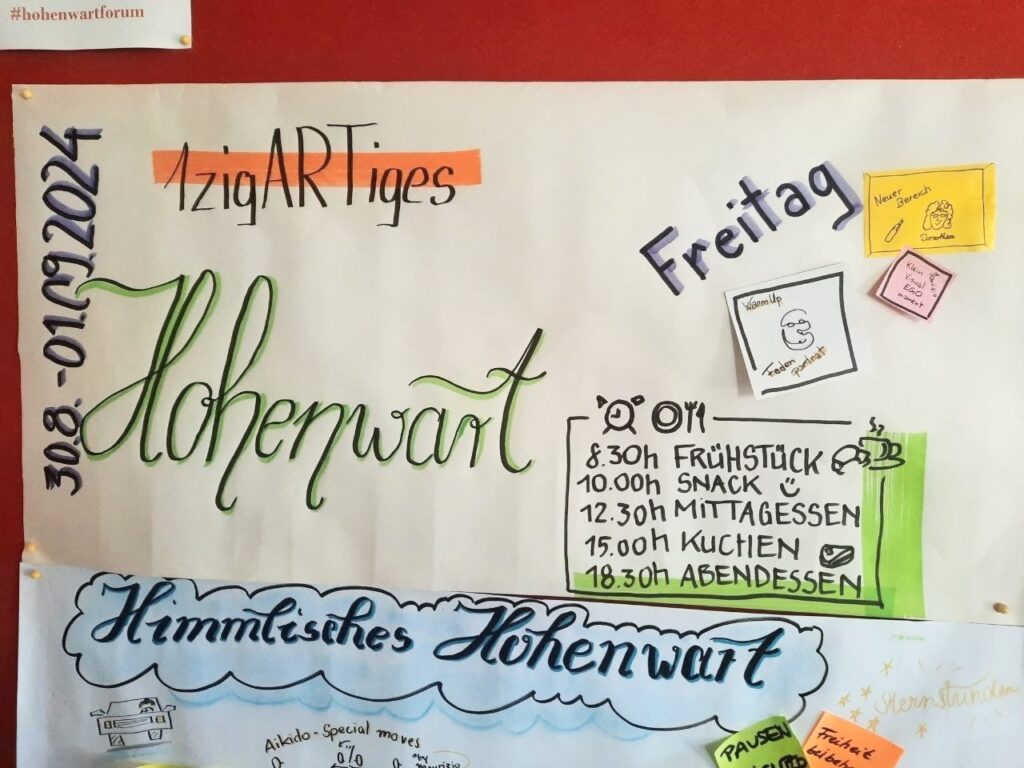 #hohenwartforum
30.8. - 01.09.2024
1zigARTiges
Hohenwart
Freitag
Neuer
Bereich
Dorothea
Klein
Visual
EGO
moment
WarmUp
Faden
portrait
8.30h FRÜHSTÜCK
10.00h SNACK
12.30h MITTAGESSEN
15.00h KUCHEN
18.30h ABENDESSEN
Himmlisches Hohenwart
Sternstunden
Aikido - Special moves
by
Maurizio
PAUSEN
Freiheit